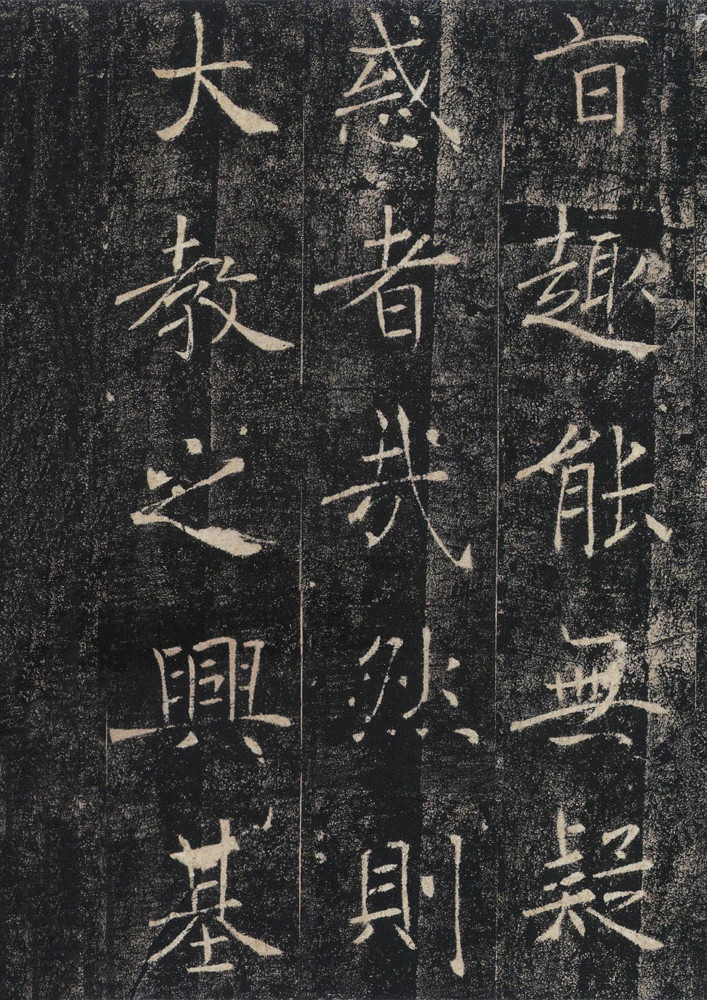 盲趣能無疑
惑者哉然則
大教之興基